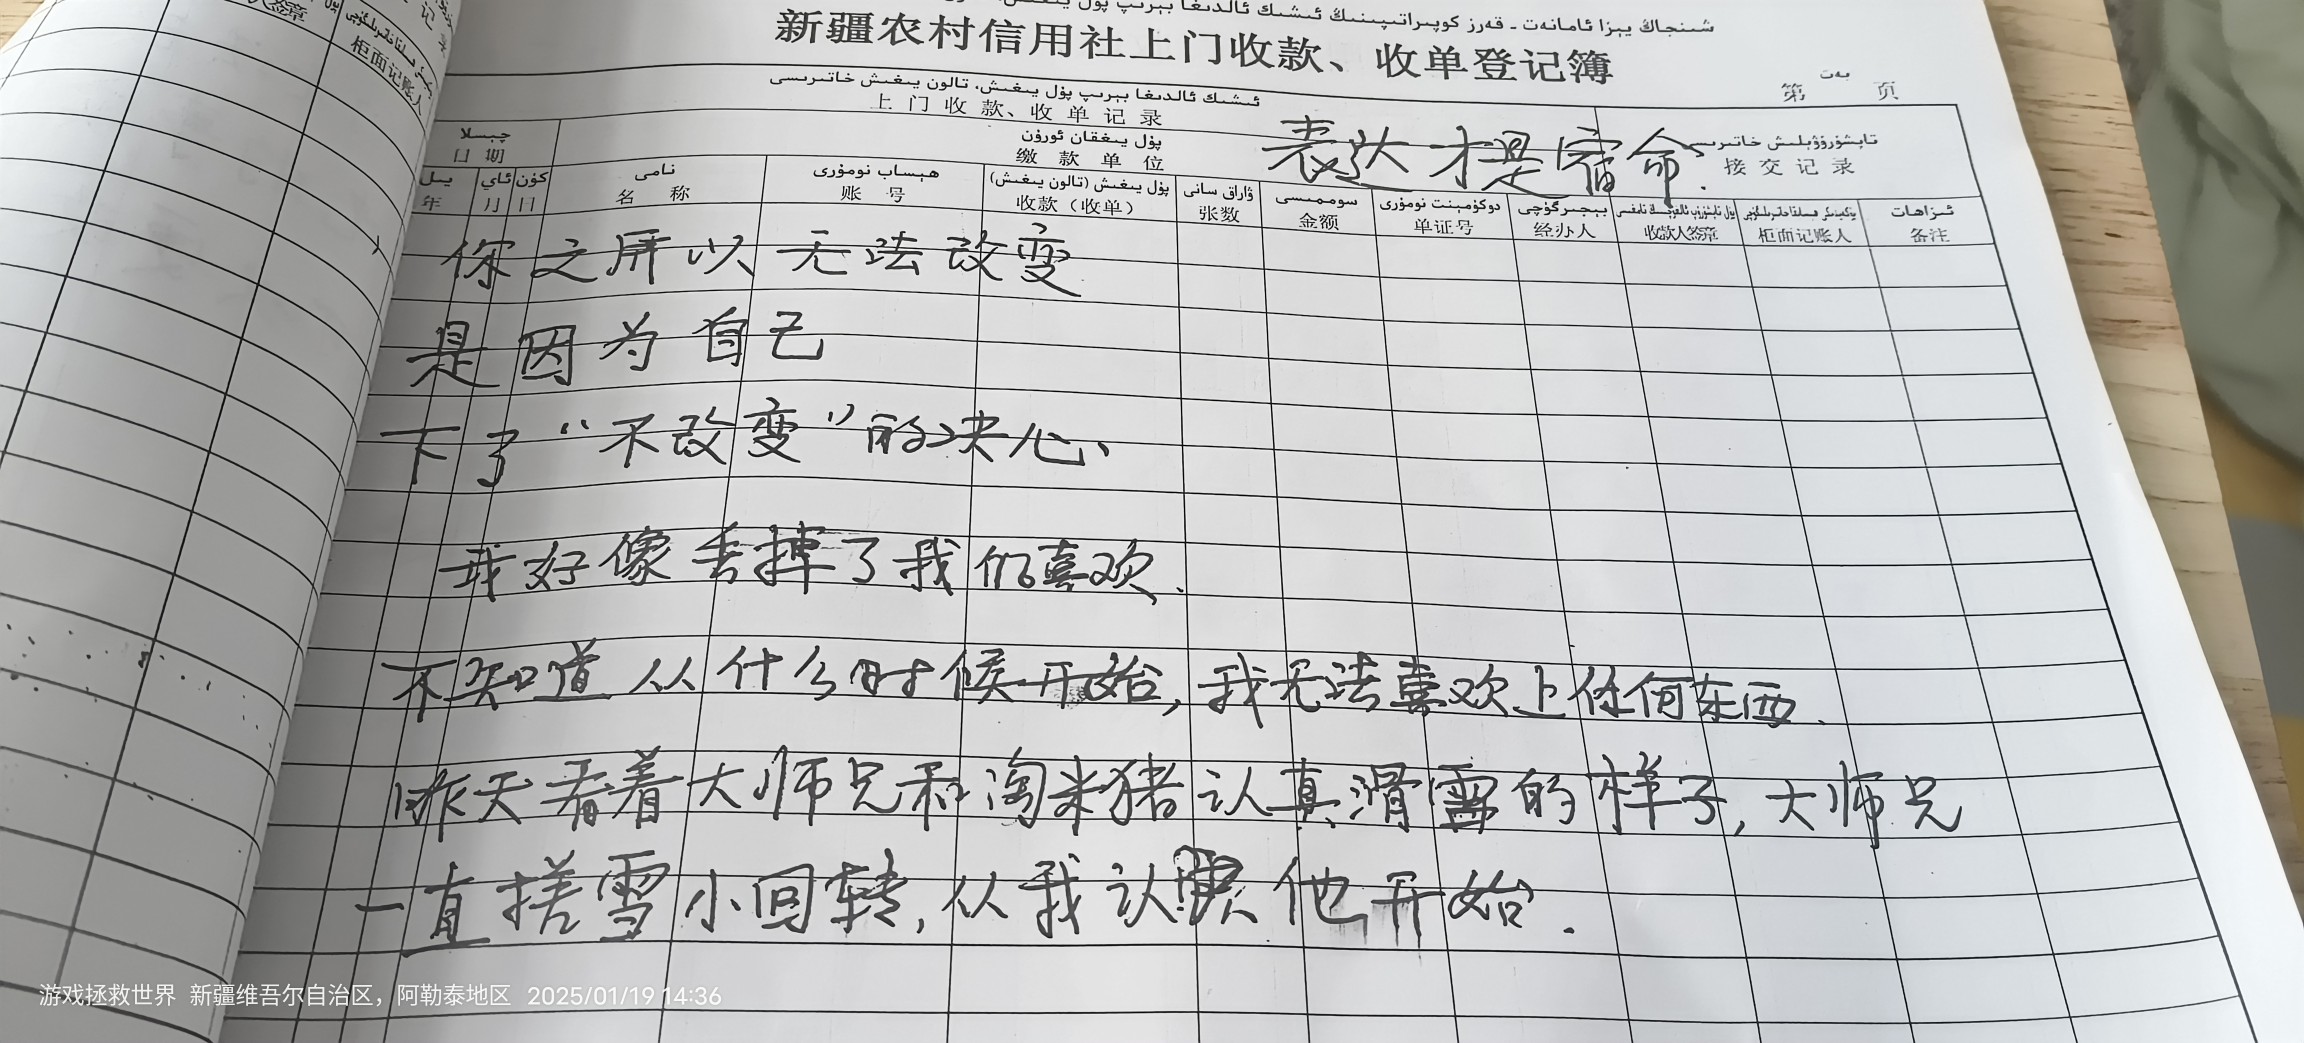 شىنجاڭ يېزا ئامانەت - قەرز كوپىراتىپىنىڭ ئىشىك ئالدىغا بېرىپ پۇل
新疆农村信用社上门收款、收单登记簿
بەت
第 页
ئىشىك ئالدىغا بېرىپ پۇل يىغىش، تالون يىغىش خاتىرىسى
上门收款、收单记录
تاپشۇرۇۋېلىش خاتىرىسى
接交记录
چېسلا
日期
پۇل يىغقان ئورۇن
缴款单位
表达才是宿命.
يىل ئاي كۈن
年 月 日
نامى
名称
ھېساب نومۇرى
账号
پۇل يىغىش (تالون يىغىش)
收款（收单）
ۋاراق سانى
张数
سوممىسى
金额
دوكۇمېنت نومۇرى
单证号
بېجىرگۈچى
经办人
收款人签章
柜面记账人
ئىزاھات
备注
人签章
柜面记账人
你之所以无法改变
是因为自己
下了“不改变”的决心、
我好像丢掉了我们喜欢.
不知道从什么时候开始,我无法喜欢上任何东西.
昨天看着大师兄和淘米猪认真滑雪的样子,大师兄
一直搓雪小回转,从我认识他开始.
游戏拯救世界 新疆维吾尔自治区，阿勒泰地区 2025/01/19 14:36